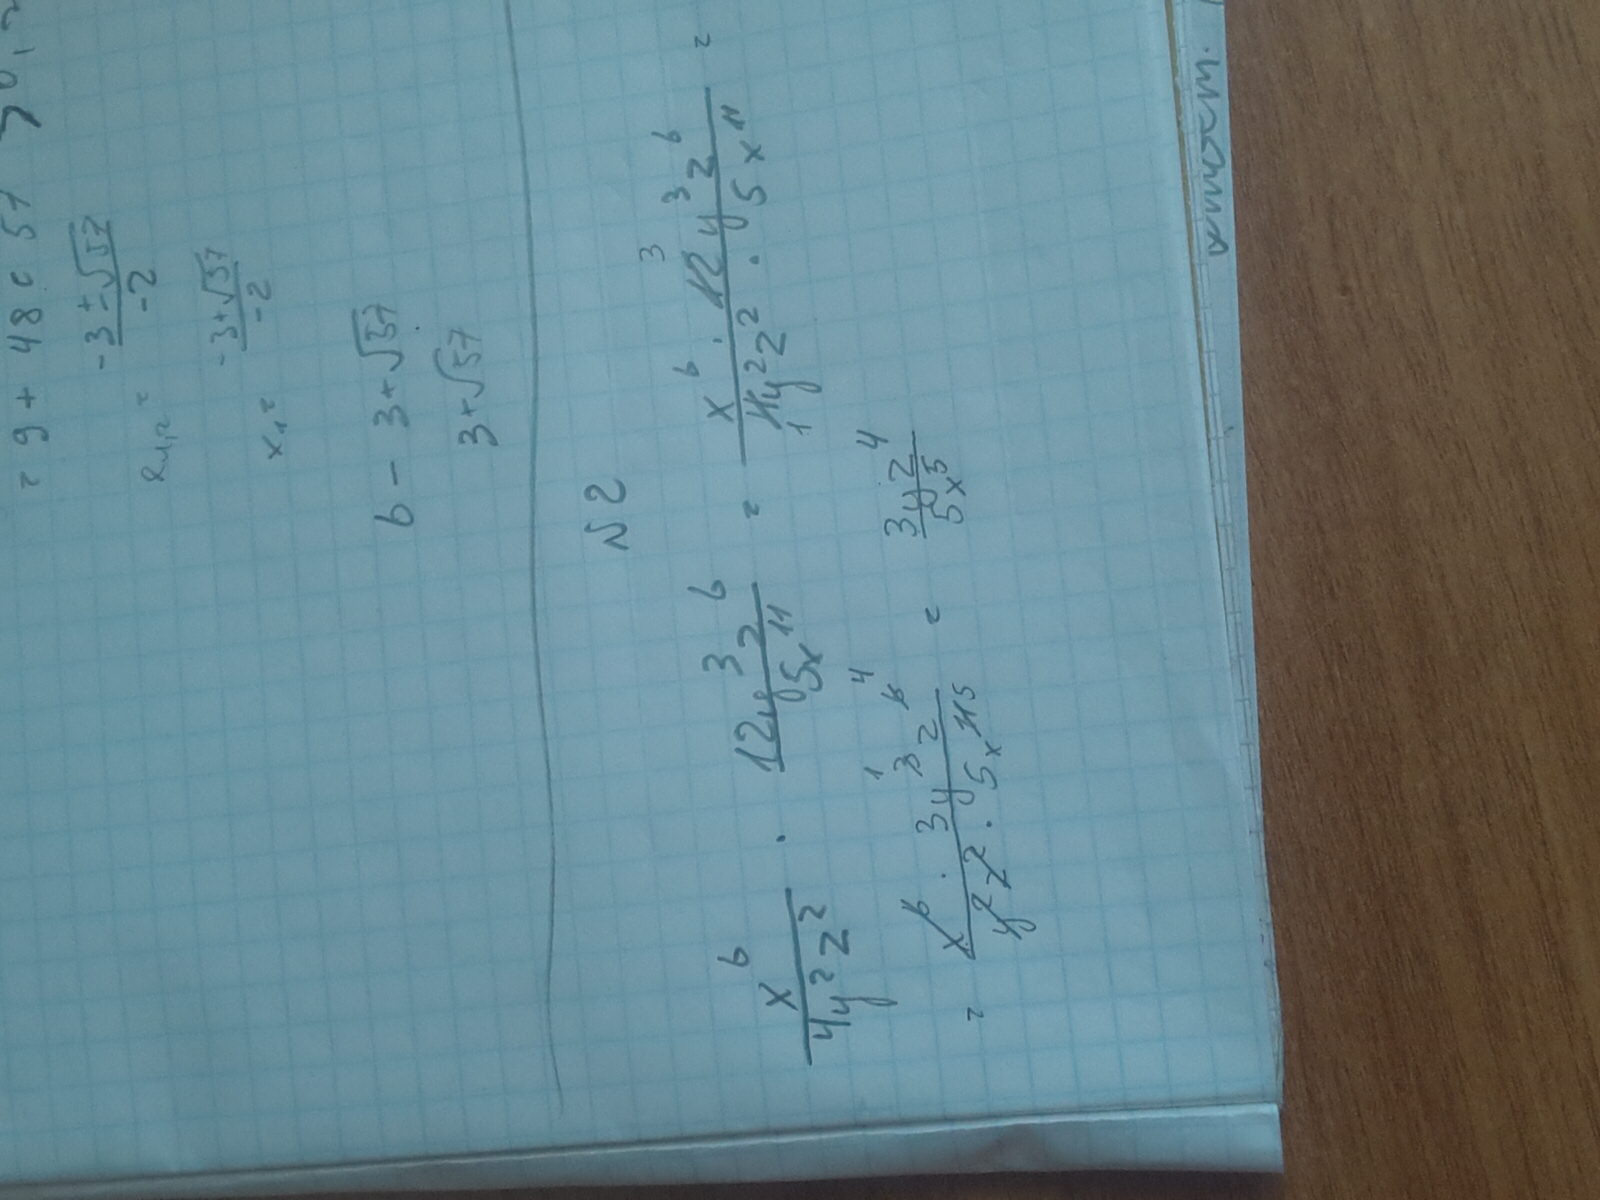 = 9 + 48 = 57 > 0, 2
x1,2 = -3 ± √57 / -2
x1 = -3 + √57 / -2
6 - 3 + √57
3 + √57
N2
x^6 / 4y^2z^2 · 12y^3z^6 / 5x^11 = x^6 · 12y^3z^6 / 4y^2z^2 · 5x^11 =
= x^6 · 3y^3z^6 / y^2z^2 · 5x^11 = 3yz^4 / 5x^5